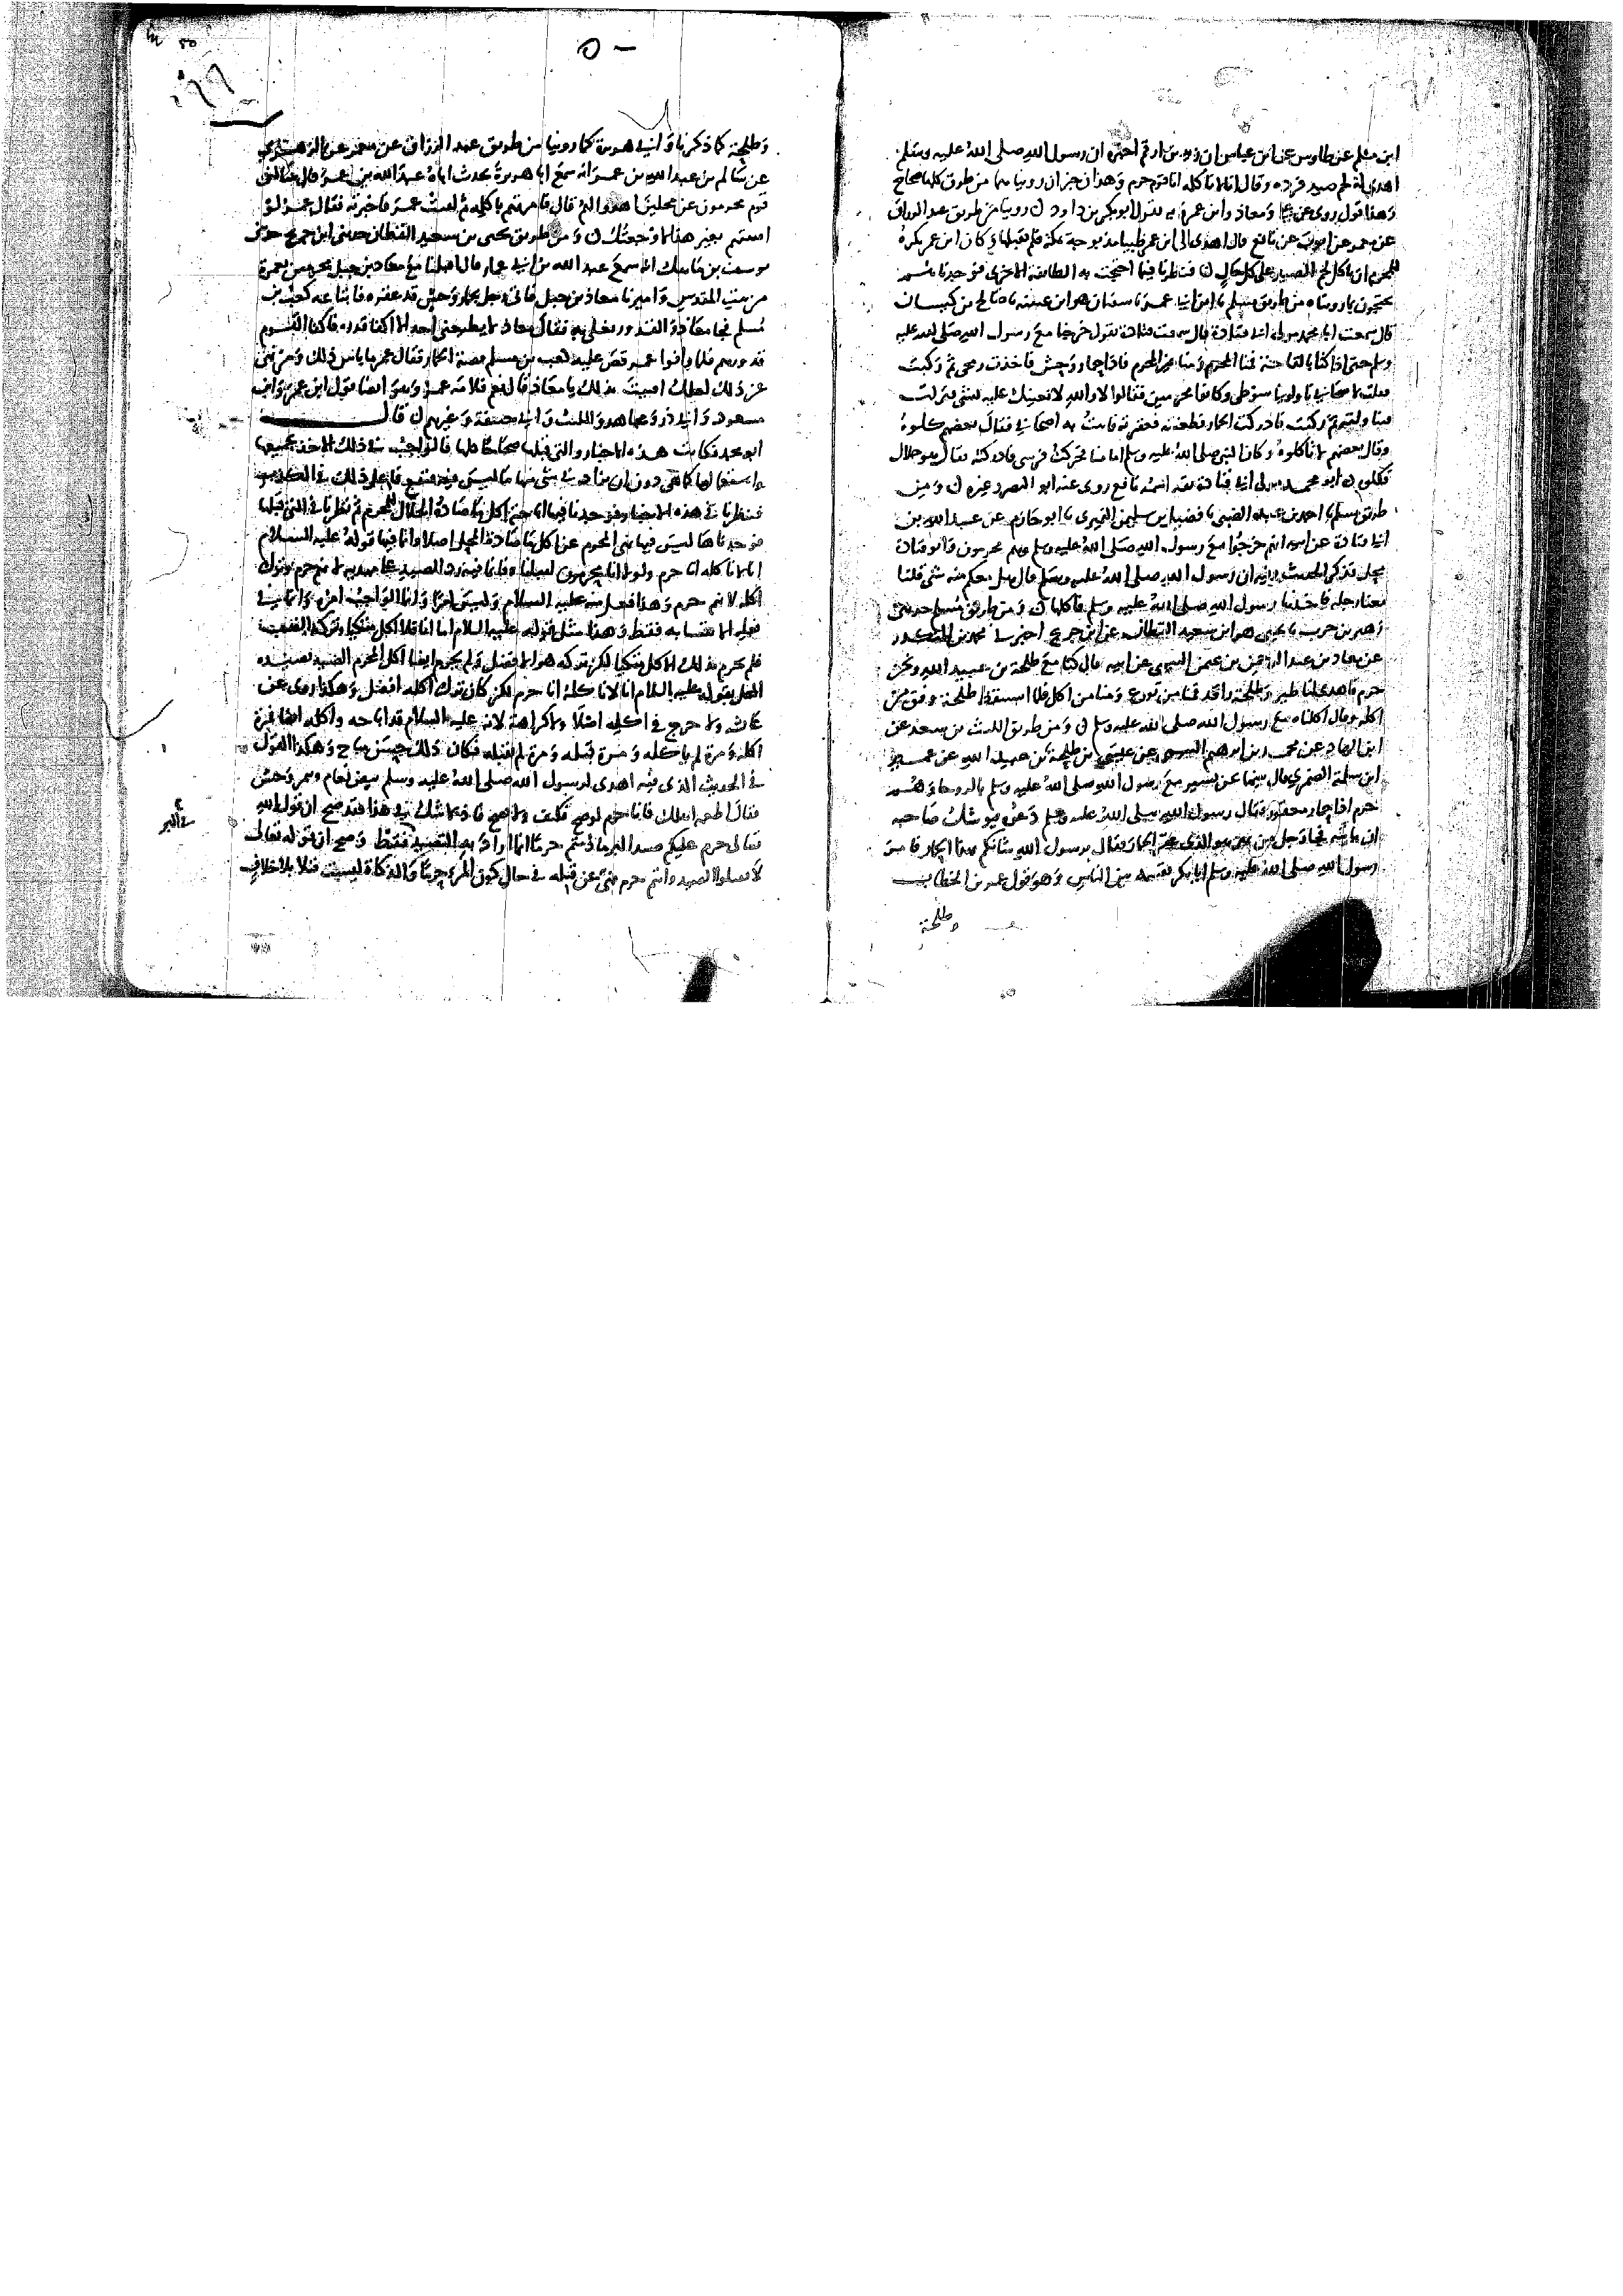 ابن مسلم عن طاوس عن ابن عباس ان زيد بن ارقم اخبره ان رسول الله صلى الله عليه وسلم
اهدي له لحم صيد فرده وقال انا لا ناكله انا قوم حرم وهذان خبران رويناهما من طرق كلها صحاح
وهذا قول روي عن علي ومعاذ وابن عمر وبه يقول ابو بكر بن داود ن روينا من طريق عبد الرزاق
عن معمر عن ايوب عن نافع قال اهدي الى ابن عمر ظبيا مذبوحة بمكة فلم يقبلها وكان ابن عمر يكره
للمحرم ان ياكل لحم الصيد على كل حال ن فنظرنا فيما احتجت به الطائفة الاخرى فوجدناهم
يحتجون بما رويناه من طريق مسلم نا ابن ابي عمر نا سفين هو ابن عيينه نا صالح بن كيسان
قال سمعت ابا محمد مولى ابي قتادة قال سمعت قتادة يقول خرجنا مع رسول الله صلى الله عليه
وسلم حتى اذا كنا بالقاحة فمنا المحرم ومنا غير المحرم فاذا حمار وحش فاخذت رمحي ثم ركبت
فقلت لاصحابي ناولوني سوطي وكانوا محرمين فقالوا لا والله لا نعينك عليه بشي فنزلت
فتناولته ثم ركبت فادركت الحمار فطعنته فعقرته فاتيت به اصحابي فقال بعضهم كلوه
وقال بعضهم لا تاكلوه وكان النبي صلى الله عليه وسلم امامنا فحركت فرسي فادركته فقال هو حلال
فكلوه ن ابو محمد مولى ابي قتادة ثقة اسمه نافع روى عنه ابو النضر وغيره ن ومن
طريق مسلم نا احمد بن عبدة الضبي نا فضيل بن سليمن النميري نا ابو حازم عن عبد الله بن
ابي قتادة عن ابيه انهم خرجوا مع رسول الله صلى الله عليه وسلم وهم محرمون وابو قتادة
محل فذكر الحديث وفيه ان رسول الله صلى الله عليه وسلم قال هل معكم منه شي قلنا
معنا رجله فاخذها رسول الله صلى الله عليه وسلم فاكلها ن ومن طريق مسلم حدثني
زهير بن حرب نا يحيى هو ابن سعيد القطان عن ابن جريج اخبرني محمد بن المنكدر
عن معاذ بن عبد الرحمن بن عثمن التيمي عن ابيه قال كنا مع طلحة بن عبيد الله ونحن
حرم فاهدي لنا طير وطلحة راقد فمنا من تورع ومنا من اكل فلما استيقظ طلحة وفق من
اكله وقال اكلناه مع رسول الله صلى الله عليه وسلم ن ومن طريق الليث بن سعد عن
ابن الهاد عن محمد بن ابرهيم التيمي عن عيسى بن طلحة بن عبيد الله عن عمير
ابن سلمة الضمري قال بينما نحن نسير مع رسول الله صلى الله عليه وسلم بالروحا وهم
حرم اذا حمار معقور فقال رسول الله صلى الله عليه وسلم دعوه يوشك صاحبه
ان ياتيه فجا رجل من بهز هو الذي عقر الحمار فقال يرسول الله شانكم هذا الحمار فامر
رسول الله صلى الله عليه وسلم ابا بكر يقسمه بين الناس وهو قول عمر بن الخطاب
وطلحة
٥٠
وطلحة كما ذكرنا وابي هريرة كما روينا من طريق عبد الرزاق عن معمر عن الزهري
عن سالم بن عبد الله بن عمر انه سمع ابا هريرة يحدث اباه عبد الله بن عمر قال سالني
قوم محرمون عن محلين اهدوا لهم قال فامرتهم باكله ثم لقيت عمر فاخبرته فقال عمر لو
افتيتهم بغير هذا لاوجعتك ن ومن طريق يحيى بن سعيد القطان حدثني ابن جريج حدثني
يوسف بن ماهك انه سمع عبد الله بن ابي عمار قال اقبلنا مع معاذ بن جبل محرمين بعمرة
من بيت المقدس واميرنا معاذ بن جبل فاتى رجل بحمار وحش قد عقره فابتاعه كعب بن
مسلم فجا معاذ والقدور تغلي به فقال معاذ لا يطيعني احد الا اكفا قدره فاكفا القوم
قدورهم فلما وافوا عمر قص عليه كعب بن مسلم قصة الحمار فقال عمر ما باس ذلك ومن نهى
عن ذلك لعلك افتيت بذلك يا معاذ قال نعم فلامه عمر وهو ايضا قول ابن عمر وابن
مسعود وابي ذر ومجاهد والليث وابي حنيفة وغيرهم ن قال
ابو محمد فكانت هذه الاخبار والتي قبلها صحاحا كلها فالواجب في ذلك الاخذ بجميعها
واستعمالها كما هي دون ان يزاد في شي منها ما ليس فيه فيقع فاعل ذلك في الكذب
فنظرنا في هذه الاخبار فوجدنا فيها اباحة اكل ما صاده الحلال للمحرم ثم نظرنا في التي قبلها
فوجدناها ليس فيها نهي المحرم عن اكل ما صاده المحل اصلا وانما فيها قوله عليه السلام
انا لا ناكله انا حرم ولولا انا محرمون لقبلناه فانما فيه رد الصيد على مهديه لانهم حرم وترك
اكله لانهم حرم وهذا فعل منه عليه السلام وليس امرا وانما الواجب امره وانما في
فعله الائتسا به فقط وهذا مثل قوله عليه السلام اما انا فلا اكل متكيا وتركه الضب
فلم يحرم بذلك الاكل متكيا لكن تركه هو الافضل ولم يحرم ايضا اكل المحرم الصيد يصيده
المحل بقوله عليه السلام انا لا ناكله انا حرم لكن كان ترك اكله افضل وهكذا روي عن
عائشه ولا حرج في اكله اصلا ولا كراهة لانه عليه السلام قد اباحه واكله ايضا فمرة
اكله ومرة لم ياكله ومرة قبله ومرة لم يقبله فكان ذلك حسن مباح وهكذا القول
في الحديث الذي فيه اهدي لرسول الله صلى الله عليه وسلم بيض نعام وتتمير وحش
فقال اطعمه اهلك فانا حرم لو صح فكيف ولا يصح فاذ لا شك في هذا فقد صح ان قول الله
تعالى حرم عليكم صيد البر ما دمتم حرما انما اراد به التصيد فقط وصح ان قوله تعالى
لا تقتلوا الصيد وانتم حرم نهي عن قتله في حال كون المرء حرما والذكاة ليست قتلا بلا خلاف
في البر